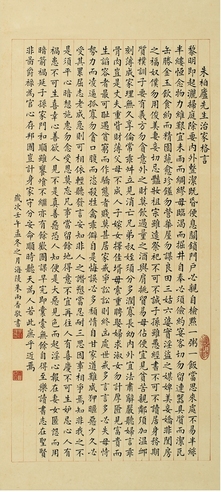 朱柏廬先生治家格言
黎明即起灑掃庭除要內外整潔既昏便息關鎖門戶必親自檢點一粥一飯當思來處不易半絲
半縷恆念物力維艱宜未雨而綢繆毋臨渴而掘井自奉必須儉約宴客切勿留連器具質而潔瓦
缶勝金玉飲食約而精園蔬愈珍饈勿營華屋勿謀良田三姑六婆實淫盜之媒婢美妾嬌非閨房
之福僮僕勿用俊美妻妾切忌艷妝祖宗雖遠祭祀不可不誠子孫雖愚經書不可不讀居身務期
質樸訓子要有義方勿貪意外之財莫飲過量之酒與肩挑貿易毋佔便宜見貧苦親鄰須加溫卹
刻薄成家理無久享倫常乖舛立見消亡兄弟叔姪須分多潤寡長幼內外宜法肅辭嚴聽婦言乖
骨肉豈是丈夫重貲財薄父母不成人子嫁女擇佳婿毋索重聘娶媳求淑女勿計厚奩見富貴而
生諂容者最可恥遇貧窮而作驕態者賤莫甚居家戒爭訟訟則終凶處世戒多言言多必失毋恃
勢力而凌逼孤寡毋貪口腹而恣殺牲禽乖僻自是悔誤必多頹惰自甘家道難成狎暱惡少久必
受其累屈志老成急則可相依輕聽發言安知非人之譖愬當忍耐三思因事相爭焉知非我之不
是須平心暗想施惠無念受恩莫忘凡事當留餘地得意不宜再往人有喜慶不可生妒忌心人有
禍患不可生喜幸心善欲人見不是真善惡恐人知便是大惡見色而起淫心報在妻女匿怨而用
暗箭禍延子孫家門和順雖饔飧不繼亦有餘歡國課早完即囊橐無餘自得至樂讀書志在聖賢
為官心存邦國豈計身家守分安命順時聽天為人若此庶乎近焉
歲次壬午之月海陵朱南香敬書